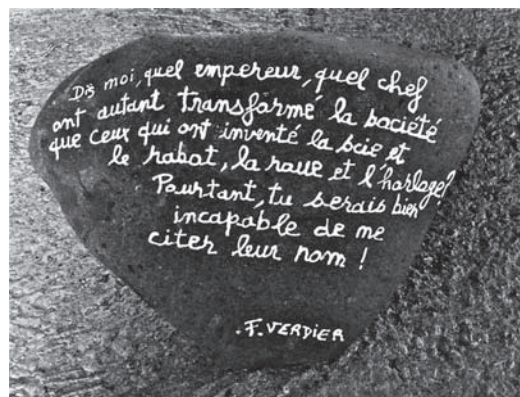 Dis moi, quel empereur, quel chef
ont autant transformé la société
que ceux qui ont inventé la scie et
le rabot, la roue et l'horloge?
Pourtant, tu serais bien
incapable de me
citer leur nom !
.F.VERDIER